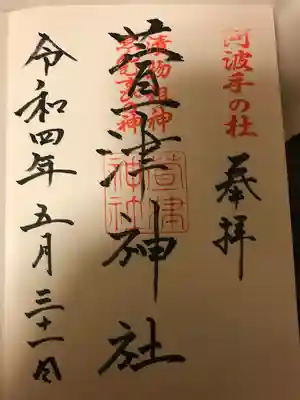 阿波手の杜
奉拝
漬物祖神
縁むすびの神
萱津神社
萱津
神社
令和四年五月三十一日